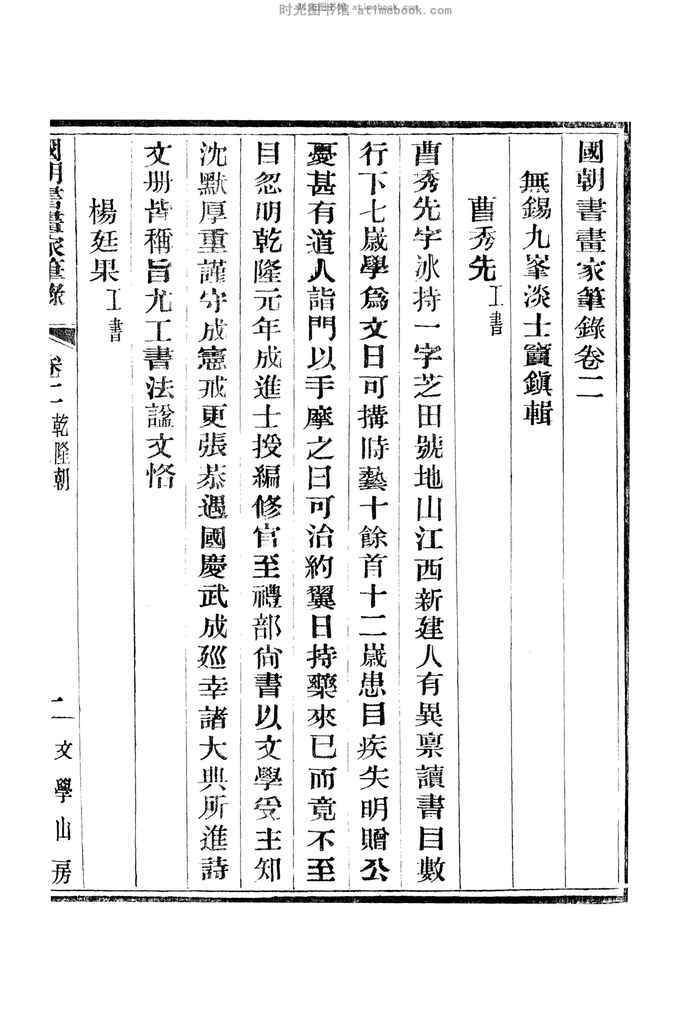 时光图书馆 atimebook.com
國朝書畫家筆錄卷二
無錫九峯淡士竇鎮輯
曹秀先工書
曹秀先字冰持一字芝田號地山江西新建人有異禀讀書目數
行下七歲學爲文日可搆時藝十餘首十二歲患目疾失明贈公
憂甚有道人詣門以手摩之曰可治約翼日持藥來已而竟不至
目忽明乾隆元年成進士授編修官至禮部尙書以文學受主知
沈默厚重謹守成憲戒更張恭遇國慶武成廵幸諸大典所進詩
文册皆稱旨尤工書法諡文恪
楊廷果工書
國朝書畫家筆錄 卷二 乾隆朝 二 文學山房